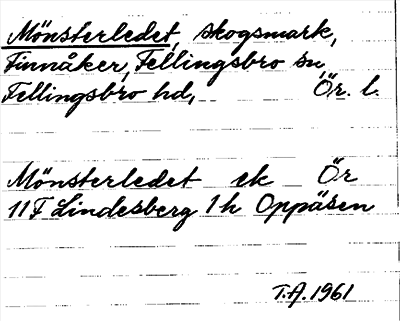 Mönsterledet, skogsmark,
Finnåker, Fellingsbro sn
Fellingsbro hd, Ör. l.
Mönsterledet ek Ör
11F Lindesberg 1h Oppåsen
T.A. 1961